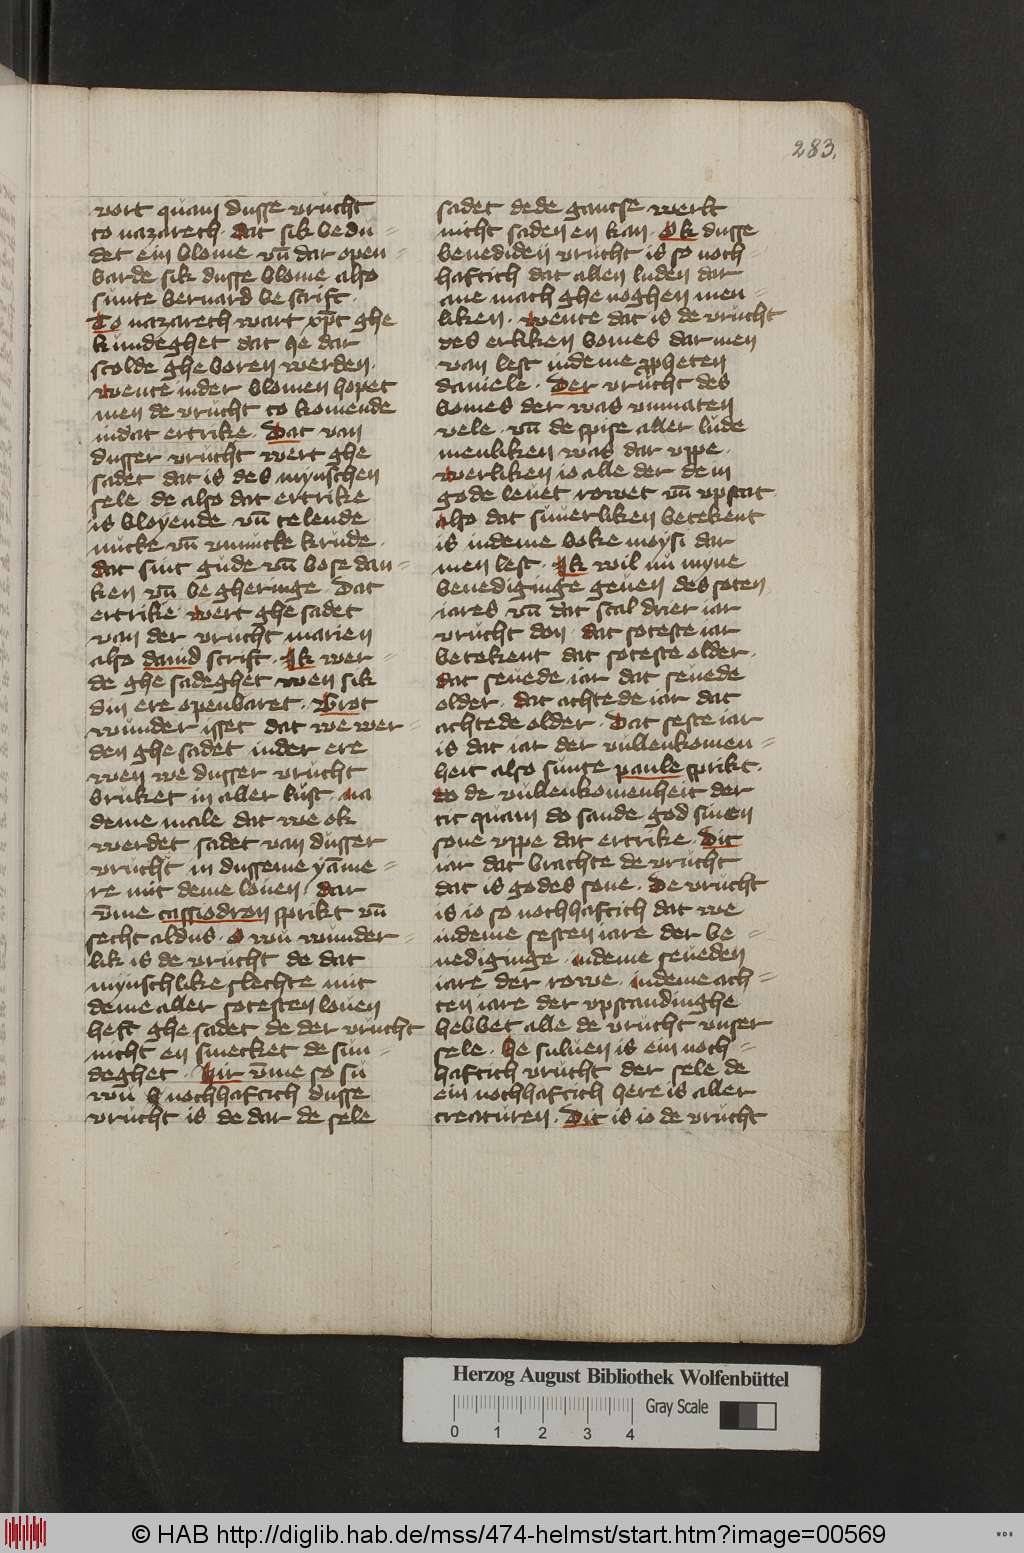 283.
vort quam dusse vrucht
to nazareth. dat sik bedu=
det ein blome vn̄ dar open=
barde sik dusse blome also
sunte bernard bescrift.
To nazareth wart xp̄t ghe
kundeghet dat he dar
scolde gheboren werden.
wente inder blomen hopet
men de vrucht to komende
indat ertrike. Dat van
dusser vrucht wert ghe
sadet dat is des mynschen
sele de also dat ertrike
is bloyende vn̄ telende
nucke vn̄ vnnucke krude.
dat sint gude vn̄ bose dan=
ken vn̄ begheringe Dat
ertrike wert ghesadet
van der vrucht marien
also dauid scrift. Ik wer=
de ghesadeghet wen sik
din ere openbaret. Grot
wunder isset dat we wer=
den ghesadet inder ere
wen we dusser vrucht
bruket in aller lust. na
deme male dat we ok
werdet sadet van dusser
vrucht in dusseme yām̄e=
re mit deme louen. dar
v̄me cassiodron sprikt vn̄
secht aldus. o wu wunder=
lik is de vrucht de dat
mynschlike slechte mit
deme aller sotesten louen
heft ghesadet de der vrucht
nicht en smecket de sun=
deghet. Hir v̄me so su
wu nochhaftich dusse
vrucht is de dar de sele
sadet dede gantse werlt
nicht saden en kan. Ok dusse
benediden vrucht is so noch=
haftich dat allen luden dar
ane mach ghenoghen men=
liken. wente dat is de vrucht
des erliken bomes dar men
van lest indeme ꝓpheten
daniele. Der vrucht des
bomes der was vnmaten
vele. vn̄ de spise aller lude
menliken was dar vppe.
werliken io alle der dem
gode leuet rowet vn̄ vpstat
also dat suuerliken betekent
is indeme boke moysi dar
men lest. Ik wil iu myne
benediginge geuen des soten
iares vn̄ dat scal drier iar
vrucht don. dat soteste iar
betekent dat soteste older.
dat seuede iar dat seuede
older. dat achtede iar dat
achtede older. Dat seste iar
is dat iar der vullenkomen=
heit also sunte paule sprikt.
do de vullenkomenheit der
tit quam do sande god sinen
sone vppe dat ertrike. Dit
iar dat brachte de vrucht
dat is godes sone. De vrucht
is io so nochhaftich dat we
indeme sesten iare der be=
nediginge. indeme seueden
iare der rowe. indeme ach=
ten iare der vpstandinghe
hebbet alle de vrucht vnser
sele. he suluen is ein noch=
haftich vrucht der sele de
ein nochhaftich here is aller
creaturen. Dit is io de vrucht
Herzog August Bibliothek Wolfenbüttel
Gray Scale
0 1 2 3 4
© HAB http://diglib.hab.de/mss/474-helmst/start.htm?image=00569